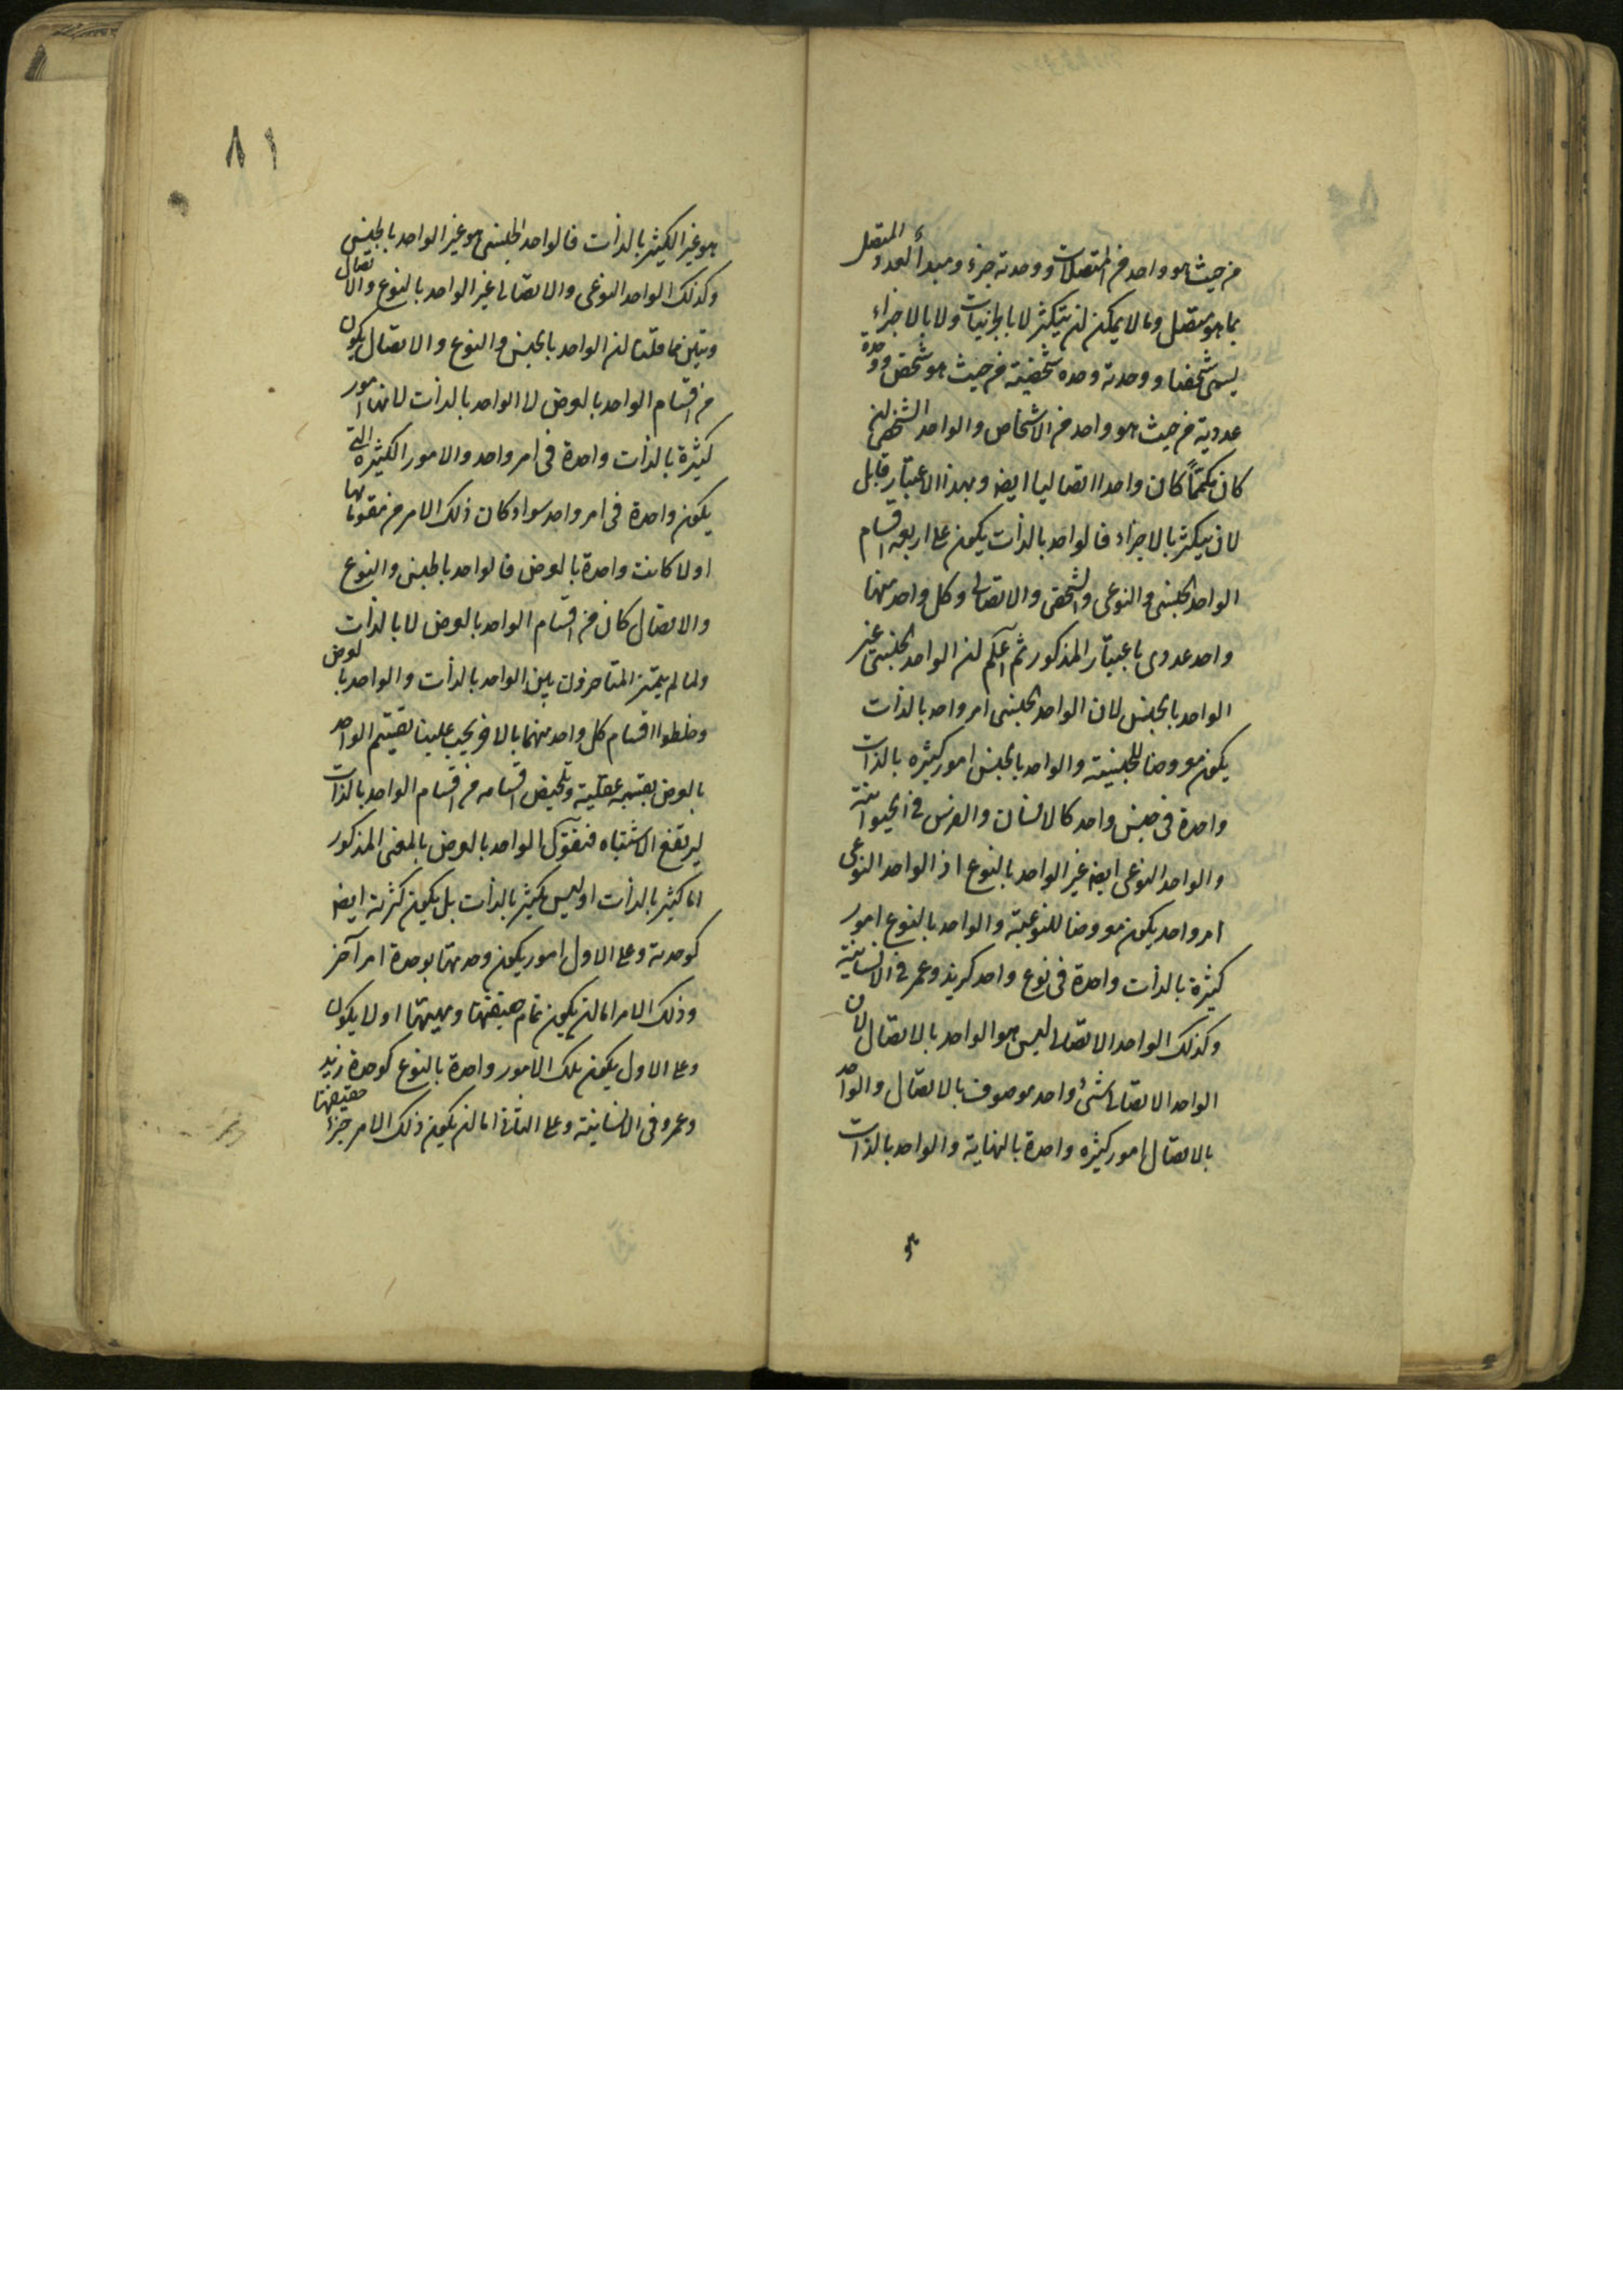 من حيث هو واحد من المتصلات ووحدته جزء ومبدأ لعدد المتصل
بما هو متصل وما لا يمكن ان يتكثر لا بالجزئيات ولا بالاجزاء
يسمى شخصا ووحدته وحده شخصية من حيث هو شخص ووحدة
عددية من حيث هو واحد من الاشخاص والواحد الشخصى ان
كان كما كان واحدا اتصاليا ايضا وبهذا الاعتبار قابل
لان يتكثر بالاجزاء فالواحد بالذات يكون على اربعه اقسام
الواحد الجنسى والنوعى والشخصى والاتصالى وكل واحد منها
واحد عددى باعتبار المذكور ثم اعلم ان الواحد الجنسى غير
الواحد بالجنس لان الواحد الجنسى امر واحد بالذات
يكون معروضا للجنسية والواحد بالجنس امور كثيره بالذات
واحدة فى جنس واحد كالانسان والفرس فى الحيوانية
والواحد النوعى ايضا غير الواحد بالنوع اذ الواحد النوعى
امر واحد يكون معروضا للنوعية والواحد بالنوع امور
كثيرة بالذات واحدة فى نوع واحد كزيد وعمر فى الانسانية
وكذلك الواحد الاتصالى ليس هو الواحد بالاتصال لان
الواحد الاتصالى شئ واحد موصوف بالاتصال والواحد
بالاتصال امور كثيره واحدة بالنهاية والواحد بالذات
٨١
هو غير الكثير بالذات فالواحد الجنسى هو غير الواحد بالجنس
وكذلك الواحد النوعى والاتصالى غير الواحد بالنوع والاتصال
وتبين مما قلنا ان الواحد بالجنس والنوع والاتصال يكون
من اقسام الواحد بالعرض لا الواحد بالذات لانها امور
كثيرة بالذات واحدة فى امر واحد والامور الكثيره التى
يكون واحدة فى امر واحد سواء كان ذلك الامر من مقوماتها
اولا كانت واحدة بالعرض فالواحد بالجنس والنوع
والاتصال كان من اقسام الواحد بالعرض لا بالذات
ولما لم يميز المتاخرون بين الواحد بالذات والواحد بالعرض
وخلطوا اقسام كل واحد منهما بالاخر يجب علينا تقسيم الواحد
بالعرض بقسمه عقلية وتلخيص اقسامه من اقسام الواحد بالذات
ليرتفع الاشتباه فنقول الواحد بالعرض بالمعنى المذكور
اما كثير بالذات او ليس بكثير بالذات بل يكون كثرته ايضا
كوحدته وعلى الاول امور يكون وحدتها بوحدة امر آخر
وذلك الامر اما ان يكون تمام حقيقتها ومهيتها او لا يكون
وعلى الاول يكون تلك الامور واحدة بالنوع كوحدة زيد
وعمرو فى الانسانية وعلى الثانى اما ان يكون ذلك الامر جزء حقيقتها